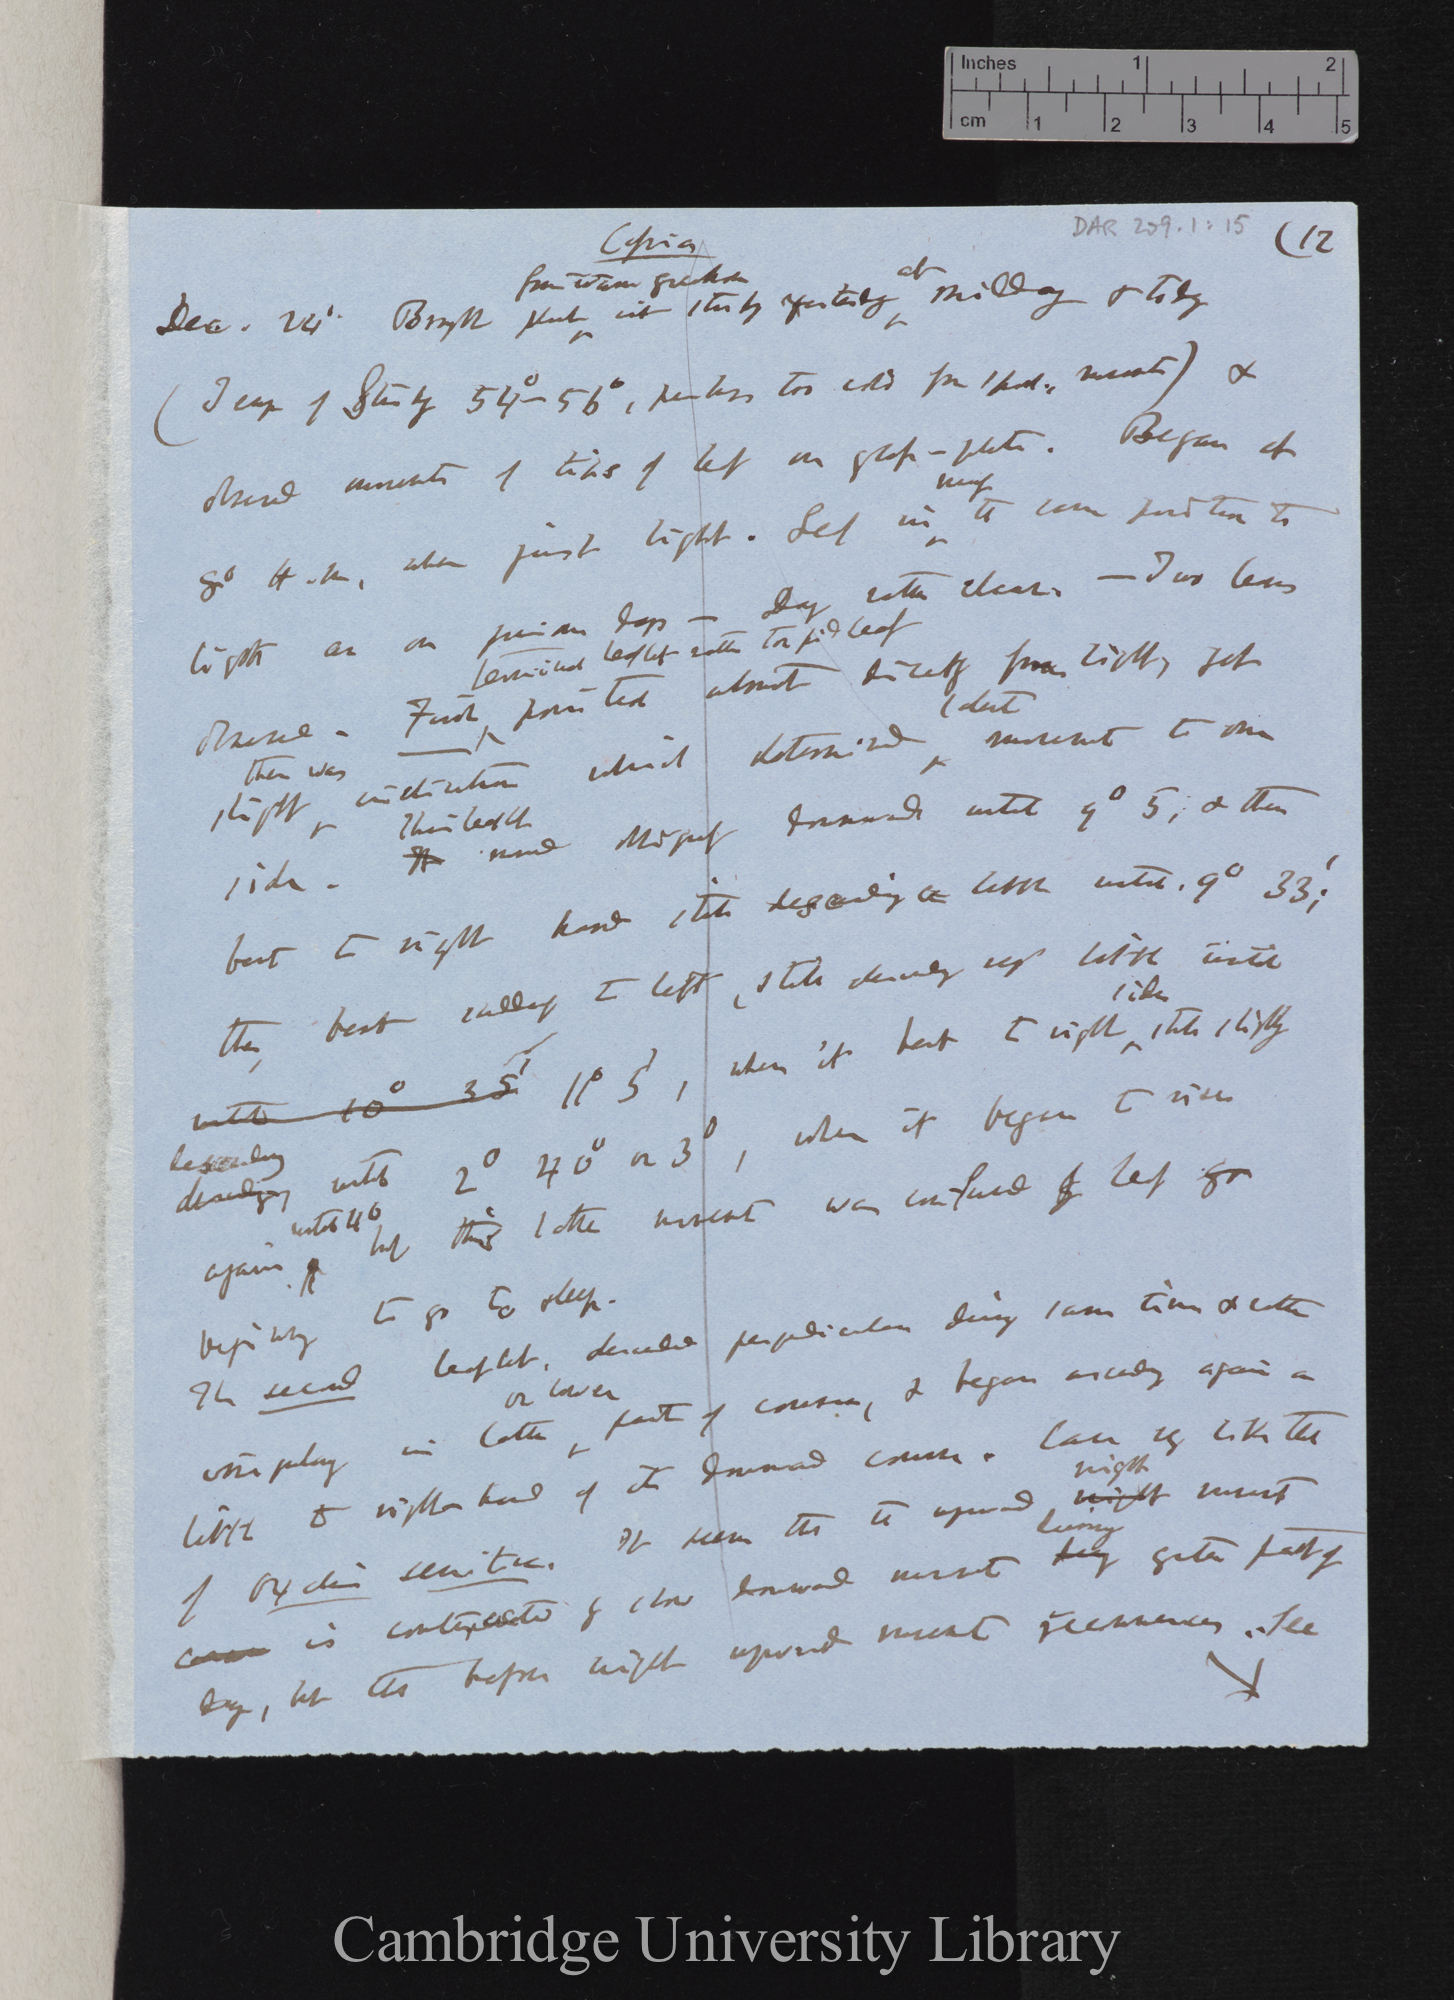 Inches 1 2
cm 1 2 3 4 5
DAR 209.1:15 (12
from warm greenhouse
Dec. 24' Brought plant into study yesterday at midday & today
(Temp of Study 54°–56°, perhaps too cold for movements) &
observed movements of tips of leaf on glass-plate. Began at
8° A.m, when just light. Leaf in nearly the same position to
light as on previous days — day rather clear. — Two leaves
terminal leaflet rather torpid leaf
observed. First pointed almost directly from light, yet
there was
slight inclination which determined movement to one
This leaflet
side. moved obliquely downwards until 9° 5; & then
bent to right hand still descending a little until 9° 33';
then bent suddenly to left, still descending very little until
side
until 10° 35' 11° 5', when it bent to right still slightly
descending
descending until 2° 40° or 3°, when it began to rise
until 4°
again but this latter movement was confused by leaf
beginning to go to sleep.
or lower
The second leaflet, descended perpendicular during same time & rather
in latter part of course, & began ascending again a
little to right hand of its downward course. Case very like that
night
of Oxalis sensitiva. It seems that the upward night movement
during
is by slow downward movement greater part of
day, but that before night upward movement recommences. See
Cambridge University Library